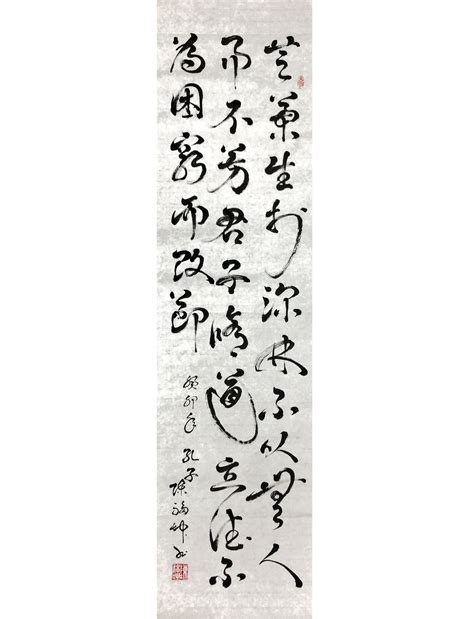 芝蘭生於深林不以無人
而不芳君子脩道立德不
為困窮而改節
癸卯年 孔子